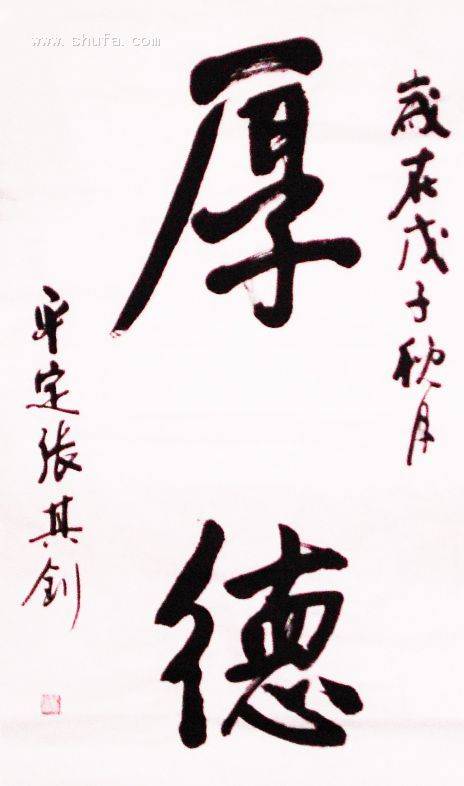 www.shufa.com
歲在戊子秋月
厚德
平定張其釗